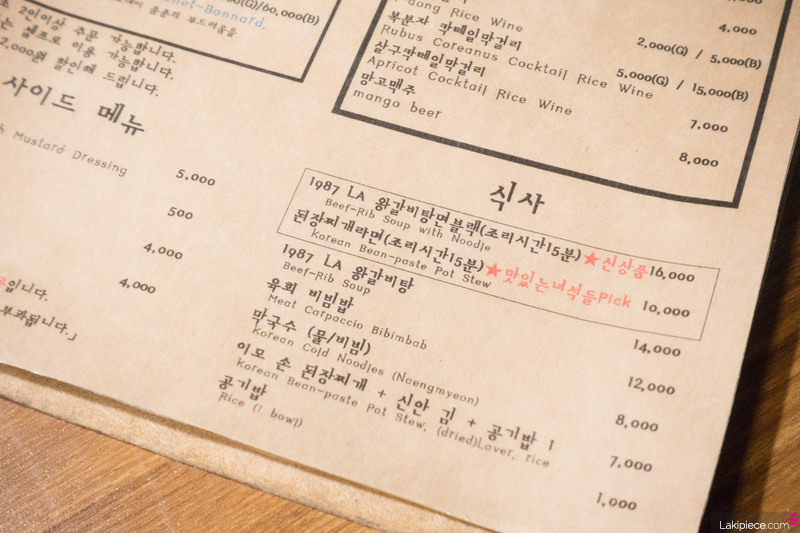 60,000(B)
net-Bonnard.
부드러움을
2인이상 주문 가능합니다.
는 셀프로 이용 가능합니다.
2,000원 할인해 드립니다.
사이드 메뉴
Mustard Dressing
5,000
500
4,000
4,000
입니다.
부과됩니다.」
dong Rice Wine
4,000
복분자 칵테일막걸리 2,000(G) / 5,000(B)
Rubus Coreanus Cocktail Rice Wine
살구칵테일막걸리 5,000(G) / 15,000(B)
Apricot Cocktail Rice Wine
망고맥주 7,000
mango beer
8,000
식사
1987 LA 왕갈비탕면블랙(조리시간15분)★신상품 16,000
Beef-Rib Soup with Noodle
된장찌개라면(조리시간15분)★맛있는녀석들Pick 10,000
Korean Bean-paste Pot Stew
1987 LA 왕갈비탕 14,000
Beef-Rib Soup
육회 비빔밥 12,000
Meat Carpaccio Bibimbab
막국수 (물/비빔) 8,000
Korean Cold Noodles (Naengmyeon)
이모 손 된장찌개 + 신안 김 + 공기밥 1 7,000
Korean Bean-paste Pot Stew, (dried)Laver, rice
공기밥 1,000
Rice (1 bowl)
Lakipiece.com